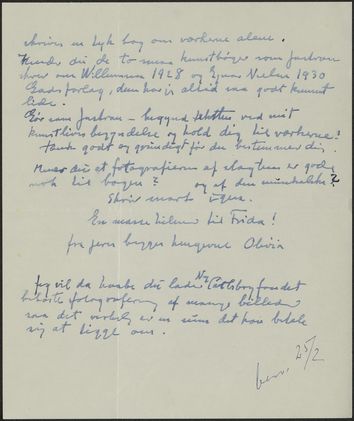 skrives en tyk bog om værkerne alene.
Kender du de to små kunstbøger som Jastrau
skrev om Willumsen 1928 og Ejnar Nielsen 1930
Gads forlag, dem har jeg altid saa godt kunnet
lide.
Gør som Jastrau – begynd ved mit
kunstlivs begyndelse og hold dig til værkerne!
tænk godt og grundigt før du bestemmer dig.
Mener du at fotografierne af er gode
nok til bogen? og af den ?
Skriv snart igen.
En masse hilsner til Frida!
fra jeres begges hengivne Olivia
Jeg vil da haabe du lader Ny Carlsbergfondet
bekoste fotografering af mange billeder
saa det virkelig er en sum det kan betale
sig at ligge om.
besv. 25/2